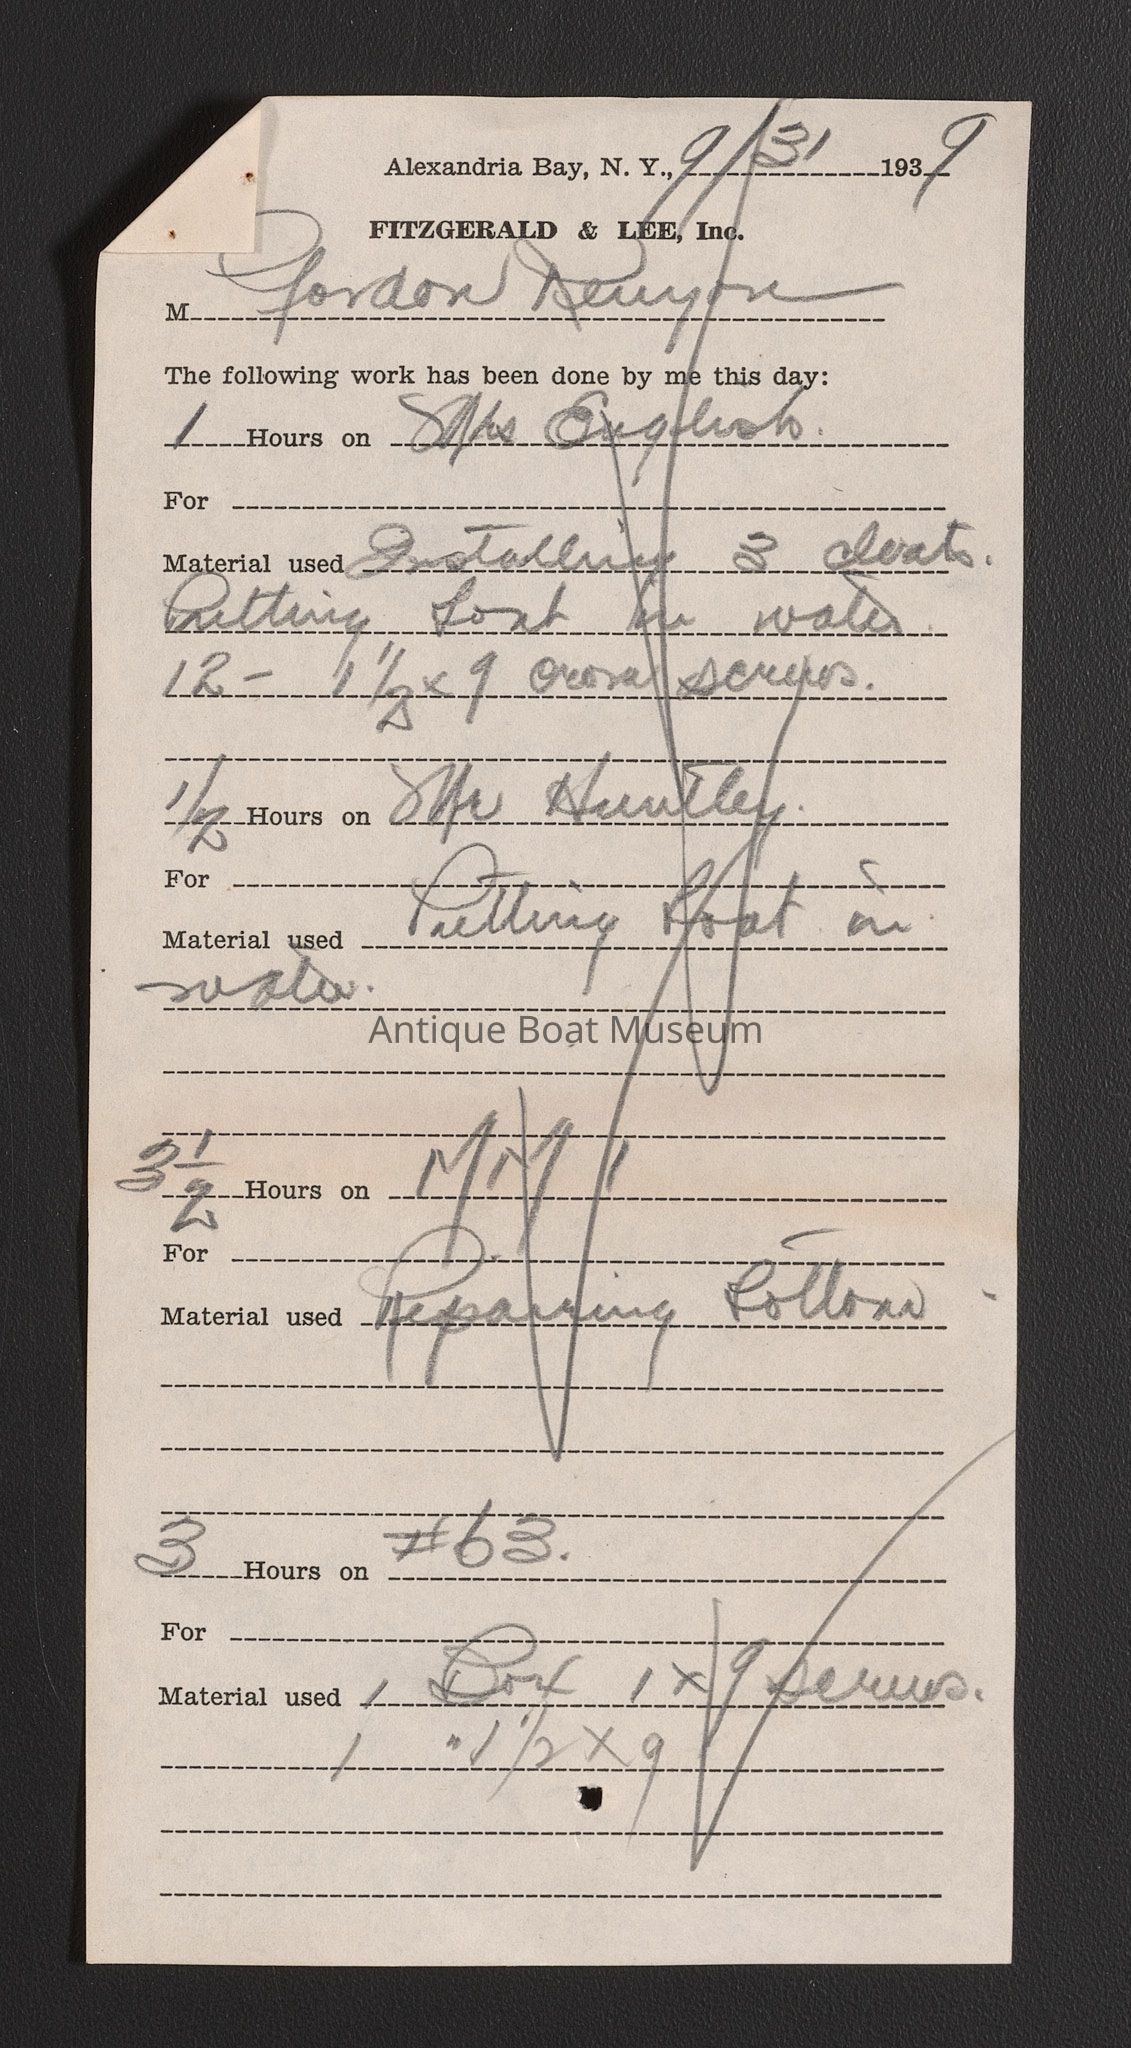 Alexandria Bay, N. Y., 9/31 1939
FITZGERALD & LEE, Inc.
M Gordon Kenyon
The following work has been done by me this day:
1 Hours on Mrs English.
For
Material used Installing 3 cleats.
Putting boat in water.
12 - 1 1/2" x 9 screws.
1/2 Hours on Mr Huntley.
For
Material used Putting boat in
water.
Antique Boat Museum
3 1/2 Hours on MM 1
For
Material used Repairing bottom
3 Hours on #63.
For
Material used 1 Box 1 x 9 screws.
1 " 1 1/2 x 9